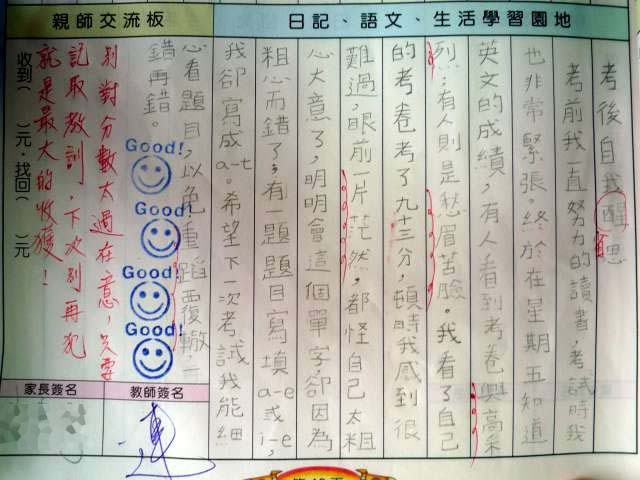 日記、語文、生活學習園地
考後自我醒思
考前我一直努力的讀書，考試時我
也非常緊張。終於在星期五知道
英文的成績，有人看到考卷興高采
烈；有人則是愁眉苦臉。我看了自己
的考卷考了九十三分，頓時我感到很
難過，眼前一片茫然，都怪自己太粗
心大意了，明明會這個單字，卻因為
粗心而錯了；有一題題目寫填a-e或i-e，
我卻寫成a-t。希望下一次考試我能細
心看題目，以免重蹈覆轍一
錯再錯。
Good!
Good!
Good!
Good!
親師交流板
別對分數太過在意，只要
記取教訓，下次別再犯
就是最大的收穫！
收到（ ）元，找回（ ）元
教師簽名
家長簽名